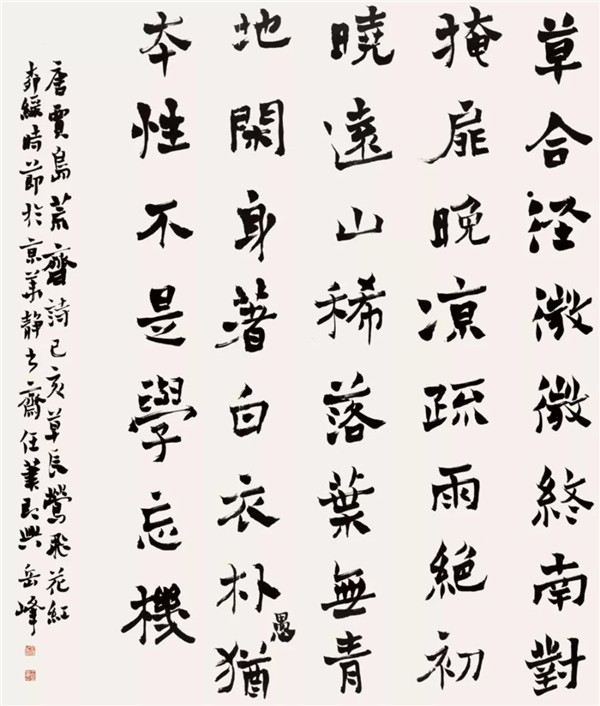 草合径微微終南對
掩扉晚凉疏雨絕初
曉遠山稀落葉無青
地閑身著白衣朴愚猶
本性不是學忘機
唐賈島荒齋詩己亥草長鶯飛花紅
柳綠時節於京華靜齋任筆即興岳峰